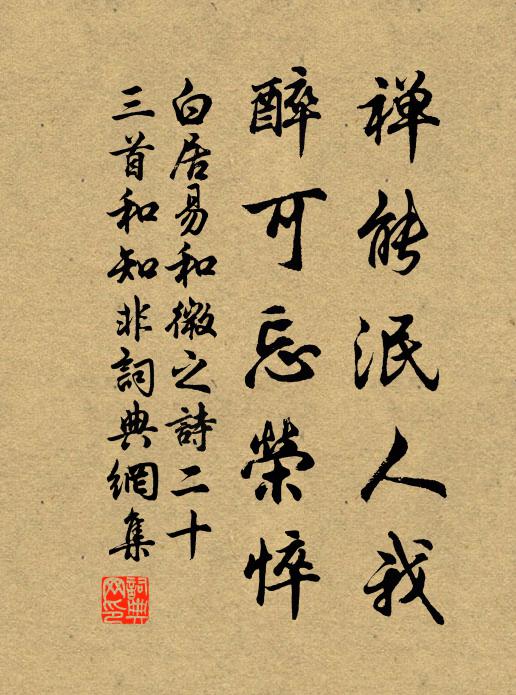 禅能泯人我
醉可忘榮悴
白居易和微之詩二十
三首和知非詞典網集
詞典网印